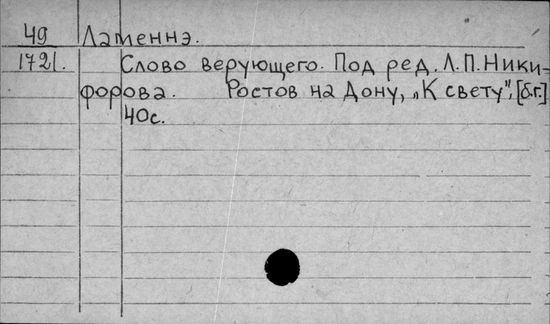 49 Ламеннэ.
1721. Слово верующего. Под ред. Л.П. Ники-
форова. Ростов на Дону, „К свету", [б.г.]
40с.